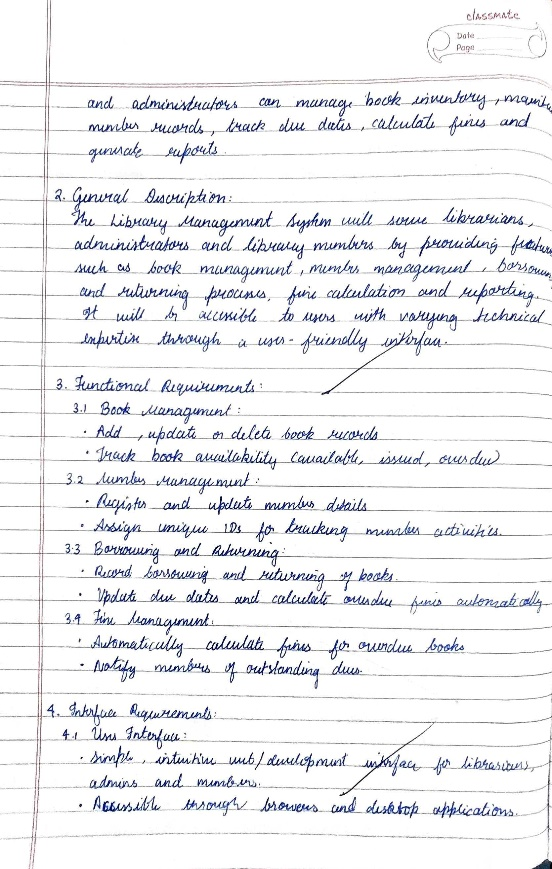 classmate
Date
Page
and administrators can manage book inventory,
member records, track due dates, calculate fines and
generate reports.
2. General Description:
The Library Management System will serve librarians,
administrators and library members by providing
such as book management, member management,
and returning process, fine calculation and reporting.
It will be accessible to users with varying technical
expertise through a user-friendly interface.
3. Functional Requirements:
3.1 Book Management:
• Add, update or delete book records
• Track book availability (available, issued, overdue)
3.2 Member Management:
• Register and update member details
• Assign unique IDs for tracking member activities.
3.3 Borrowing and Returning:
• Record borrowing and returning of books.
• Update due dates and calculate overdue fines automatically
3.4 Fine Management:
• Automatically calculate fines for overdue books
• Notify members of outstanding dues.
4. Interface Requirements:
4.1 User Interface:
• Simple, intuitive web/development interface for librarians,
admins and members.
• Accessible through browers and desktop applications.